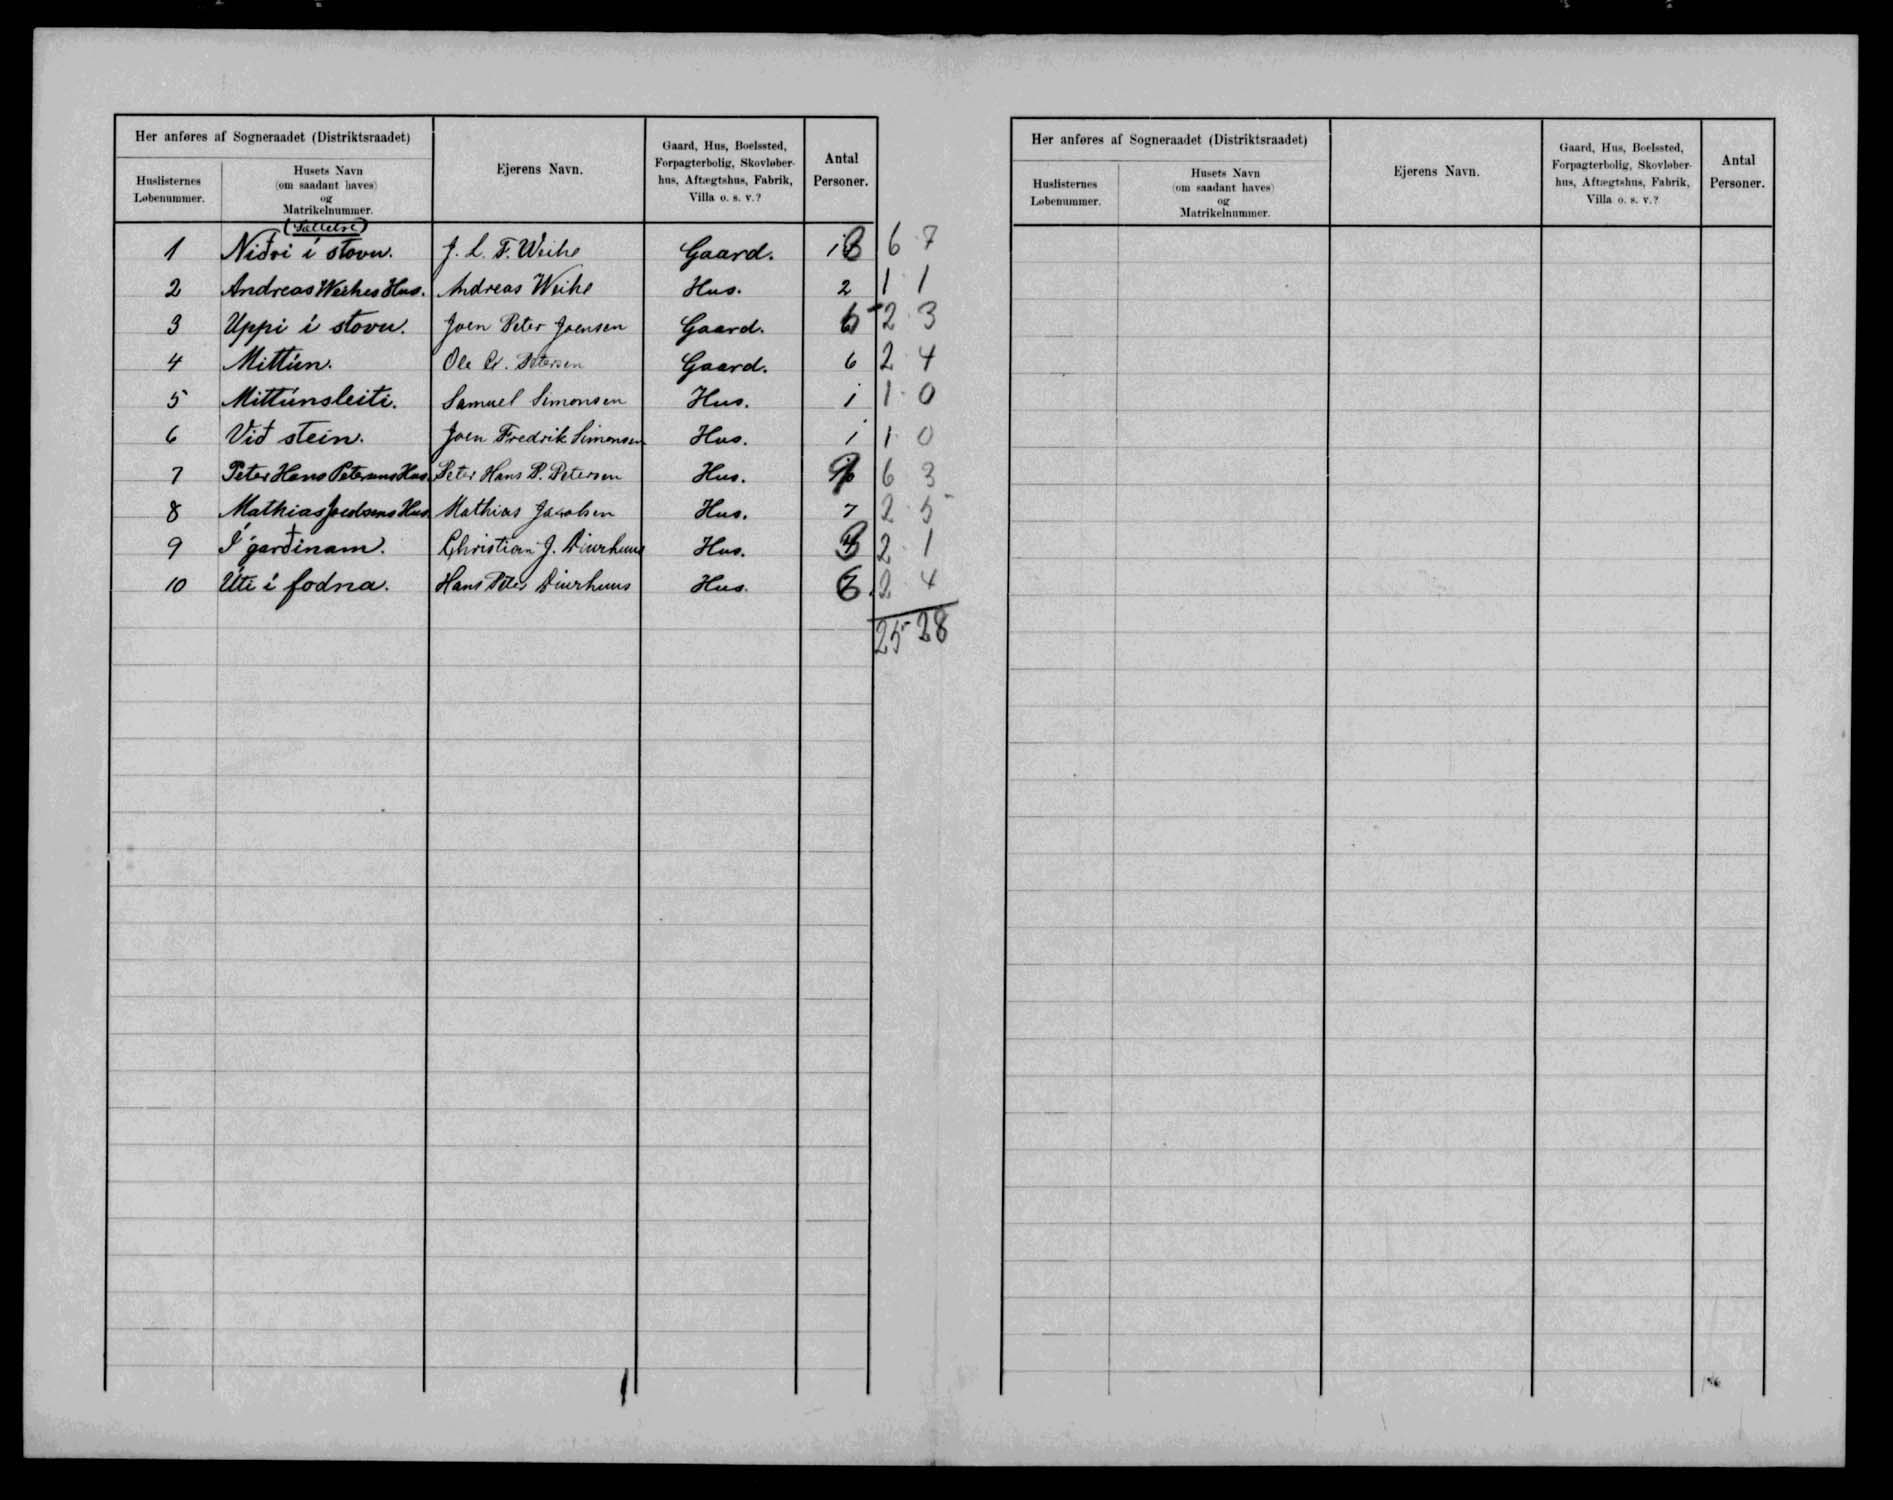 Her anføres af Sogneraadet (Distriktsraadet)
Huslisternes Løbenummer.
Husets Navn (om saadant haves) og Matrikelnummer.
Ejerens Navn.
Gaard, Hus, Boelssted, Forpagterbolig, Skovløberhus, Aftægtshus, Fabrik, Villa o. s. v.?
Antal Personer.
1 Niðri i stovu. J. L. F. Weihe Gaard. 13 6 7
2 Andreas Weihes Hus. Andreas Weihe Hus. 2 1 1
3 Uppi í stovu. Joen Peter Joensen Gaard. 5 2 3
4 Mittún. Ole Petersen Gaard. 6 2 4
5 Mittúnsleiti. Samuel Simonsen Hus. 1 1 0
6 Við stein. Joen Fredrik Simonsen Hus. 1 1 0
7 Peter Hans Petersens Hus. Peter Hans P. Petersen Hus. 9 6 3
8 Mathias Jacobsens Hus Mathias Jacobsen Hus. 7 2 5
9 Í garðinam. Christian J. Diurhuus Hus. 3 2 1
10 Úti í fodna. Hans Peter Diurhuus Hus. 6 2 4
25 28
Her anføres af Sogneraadet (Distriktsraadet)
Huslisternes Løbenummer.
Husets Navn (om saadant haves) og Matrikelnummer.
Ejerens Navn.
Gaard, Hus, Boelssted, Forpagterbolig, Skovløberhus, Aftægtshus, Fabrik, Villa o. s. v.?
Antal Personer.